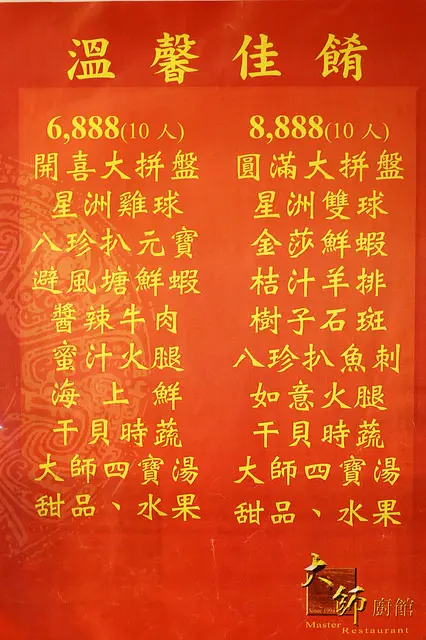 溫馨佳餚
6,888(10人)
開喜大拼盤
星洲雞球
八珍扒元寶
避風塘鮮蝦
醬辣牛肉
蜜汁火腿
海上鮮
干貝時蔬
大師四寶湯
甜品、水果
8,888(10人)
圓滿大拼盤
星洲雙球
金莎鮮蝦
桔汁羊排
樹子石斑
八珍扒魚刺
如意火腿
干貝時蔬
大師四寶湯
甜品、水果
大師廚館
Since 1994
Master Restaurant